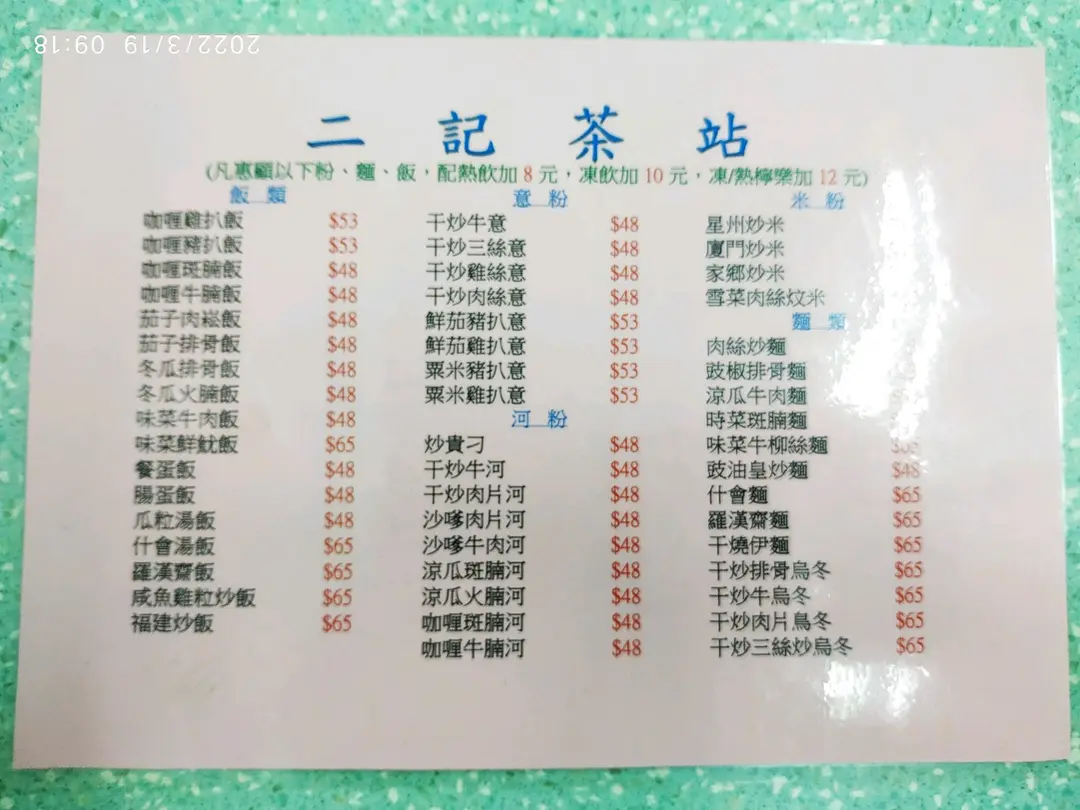 2022/3/19 09:18
二 記 茶 站
(凡惠顧以下粉、麵、飯，配熱飲加 8 元，凍飲加 10 元，凍/熱檸樂加 12 元)
飯 類
咖喱雞扒飯 $53
咖喱豬扒飯 $53
咖喱斑腩飯 $48
咖喱牛腩飯 $48
茄子肉崧飯 $48
茄子排骨飯 $48
冬瓜排骨飯 $48
冬瓜火腩飯 $48
味菜牛肉飯 $48
味菜鮮魷飯 $65
餐蛋飯 $48
腸蛋飯 $48
瓜粒湯飯 $48
什會湯飯 $65
羅漢齋飯 $65
咸魚雞粒炒飯 $65
福建炒飯 $65
意 粉
干炒牛意 $48
干炒三絲意 $48
干炒雞絲意 $48
干炒肉絲意 $48
鮮茄豬扒意 $53
鮮茄雞扒意 $53
粟米豬扒意 $53
粟米雞扒意 $53
河 粉
炒貴刁 $48
干炒牛河 $48
干炒肉片河 $48
沙嗲肉片河 $48
沙嗲牛肉河 $48
涼瓜斑腩河 $48
涼瓜火腩河 $48
咖喱斑腩河 $48
咖喱牛腩河 $48
米 粉
星州炒米
廈門炒米
家鄉炒米
雪菜肉絲炆米
麵 類
肉絲炒麵
豉椒排骨麵
涼瓜牛肉麵
時菜斑腩麵
味菜牛柳絲麵
豉油皇炒麵 $48
什會麵 $65
羅漢齋麵 $65
干燒伊麵 $65
干炒排骨烏冬 $65
干炒牛烏冬 $65
干炒肉片烏冬 $65
干炒三絲炒烏冬 $65